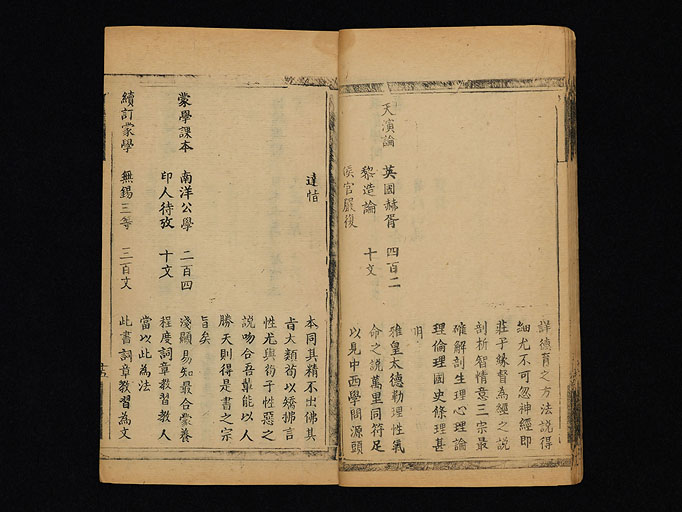 詳德育之方法說得
細尤不可忽神經即
莊子緣督為經之說
剖析智情意三宗最
確解剖生理心理論
理倫理國史條理甚
明
天演論 英國赫胥 四百二 雅皇太德勒理性氣
黎造論 十文 命之說萬里同符足
侯官嚴復 以見中西學問源頭
達恉 本同其精不出佛其
旨大類荀以矯拂言
性尤與荀子性惡之
說吻合吾輩能以人
勝天則得是書之宗
旨矣
蒙學課本 南洋公學 二百四 淺顯易知最合蒙養
印人待攷 十文 程度詞章教習教人
當以此為法
續訂蒙學 無錫三等 三百文 此書詞章教習為文